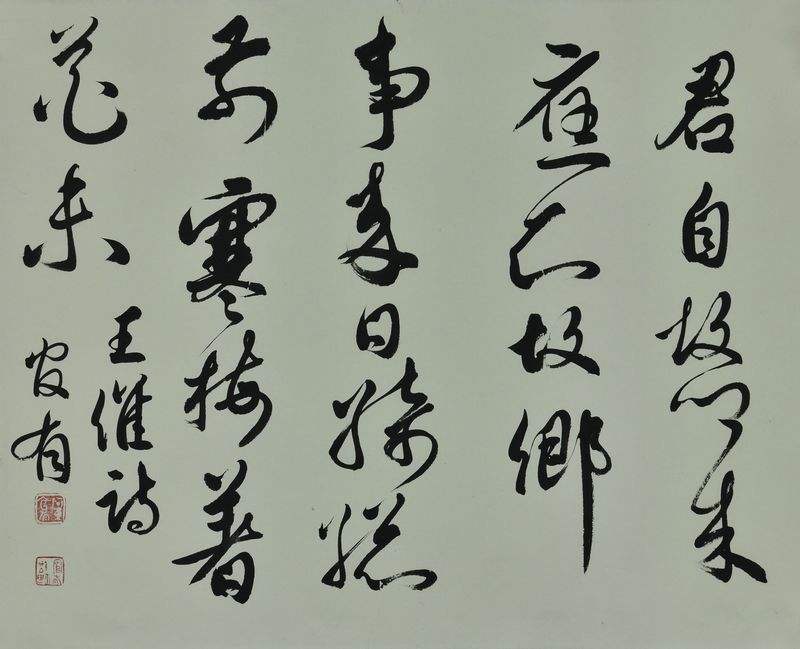 君自故鄉来
應知故鄉
事来日綺窓
前寒梅著
花未
王維詩